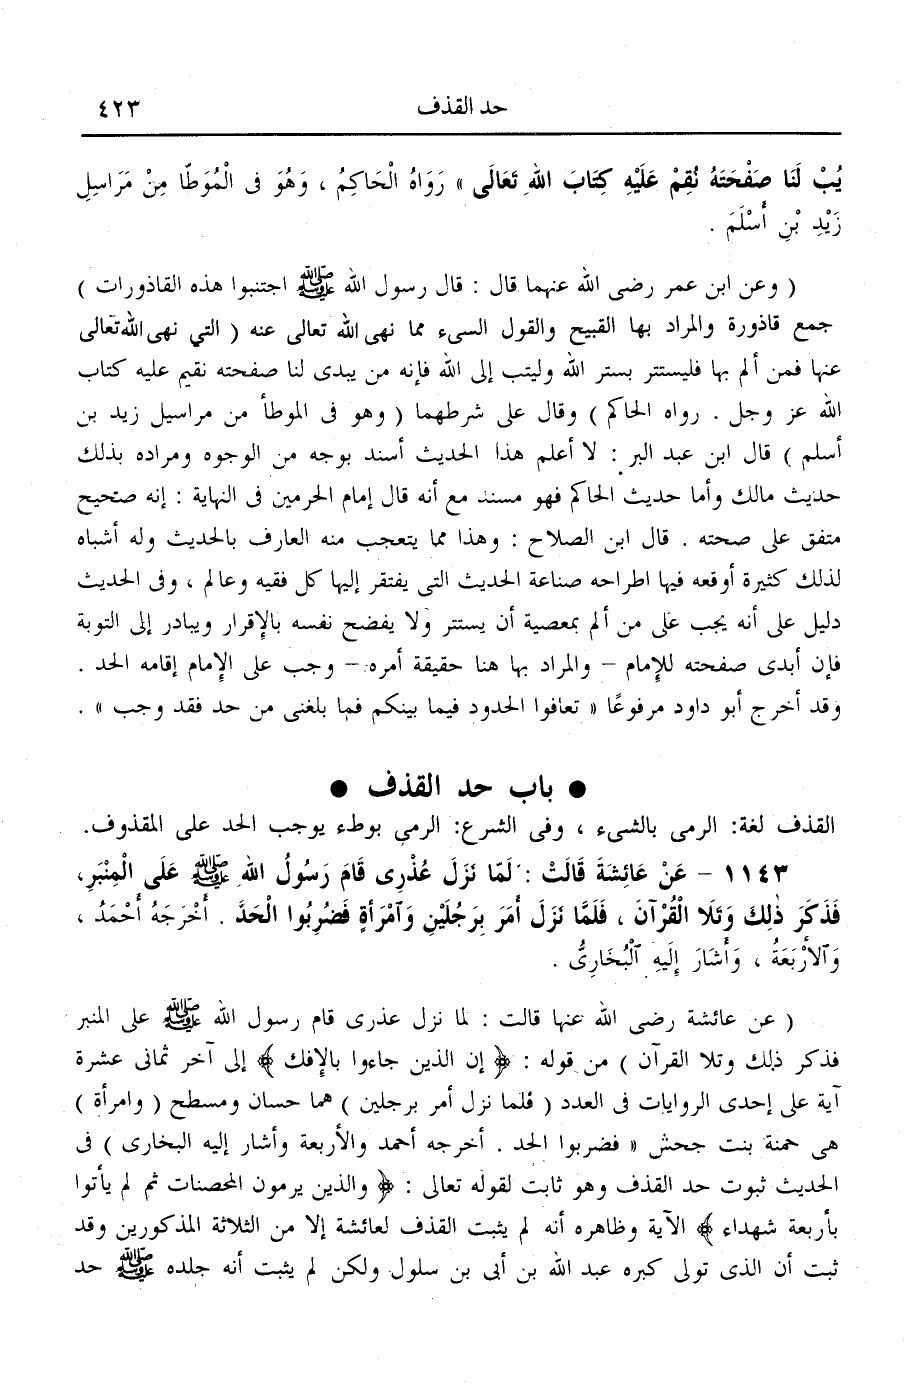 حد القذف ٤٢٣
يُبْ لَنَا صَفْحَتَهُ نُقِمْ عَلَيْهِ كِتَابَ اللهِ تَعَالَى » رَوَاهُ الْحَاكِمُ ، وَهُوَ فِى الْمُوَطَّا مِنْ مَرَاسِلِ
زَيْدِ بْنِ أَسْلَمَ .
( وعن ابن عمر رضى الله عنهما قال : قال رسول الله ﷺ اجتنبوا هذه القاذورات )
جمع قاذورة والمراد بها القبيح والقول السىء مما نهى الله تعالى عنه ( التي نهى الله تعالى
عنها فمن ألم بها فليستتر بستر الله وليتب إلى الله فإنه من يبدى لنا صفحته نقيم عليه كتاب
الله عز وجل . رواه الحاكم ) وقال على شرطهما ( وهو فى الموطأ من مراسيل زيد بن
أسلم ) قال ابن عبد البر : لا أعلم هذا الحديث أسند بوجه من الوجوه ومراده بذلك
حديث مالك وأما حديث الحاكم فهو مسند مع أنه قال إمام الحرمين فى النهاية : إنه صتحيح
متفق على صحته . قال ابن الصلاح : وهذا مما يتعجب منه العارف بالحديث وله أشباه
لذلك كثيرة أوقعه فيها اطراحه صناعة الحديث التى يفتقر إليها كل فقيه وعالم ، وفى الحديث
دليل على أنه يجب على من ألم بمعصية أن يستتر ولا يفضح نفسه بالإقرار ويبادر إلى التوبة
فإن أبدى صفحته للإمام – والمراد بها هنا حقيقة أمره – وجب على الإمام إقامه الحد .
وقد أخرج أبو داود مرفوعًا « تعافوا الحدود فيما بينكم فما بلغنى من حد فقد وجب » .
● باب حد القذف ●
القذف لغة: الرمى بالشىء ، وفى الشرع: الرمي بوطء يوجب الحد على المقذوف.
١١٤٣ – عَنْ عَائِشَةَ قَالَتْ : لَمَّا نَزَلَ عُذْرِى قَامَ رَسُولُ اللهِ ﷺ عَلَى الْمِنْبَرِ،
فَذَكَرَ ذٰلِكَ وَتَلَا الْقُرْآنَ ، فَلَمَّا نَزَلَ أَمَرَ بِرَجُلَيْنِ وَٱمْرَأةٍ فَضُرِبُوا الْحَدَّ . أَخْرَجَهُ أَحْمَدُ ،
وَٱلأَرْبَعَةُ ، وَأَشَارَ إِلَيهِ ٱلْبُخَارِىُّ .
( عن عائشة رضى الله عنها قالت : لما نزل عذرى قام رسول الله ﷺ على المنبر
فذكر ذلك وتلا القرآن ) من قوله : ﴿ إن الذين جاءوا بالإفك ﴾ إلى آخر ثمانى عشرة
آية على إحدى الروايات فى العدد ( فلما نزل أمر برجلين ) هما حسان ومسطح ( وامرأة )
هى حمنة بنت جحش « فضربوا الحد . أخرجه أحمد والأربعة وأشار إليه البخارى ) فى
الحديث ثبوت حد القذف وهو ثابت لقوله تعالى : ﴿ والذين يرمون المحصنات ثم لم يأتوا
بأربعة شهداء ﴾ الآية وظاهره أنه لم يثبت القذف لعائشة إلا من الثلاثة المذكورين وقد
ثبت أن الذى تولى كبره عبد الله بن أبى بن سلول ولكن لم يثبت أنه جلده ﷺ حد